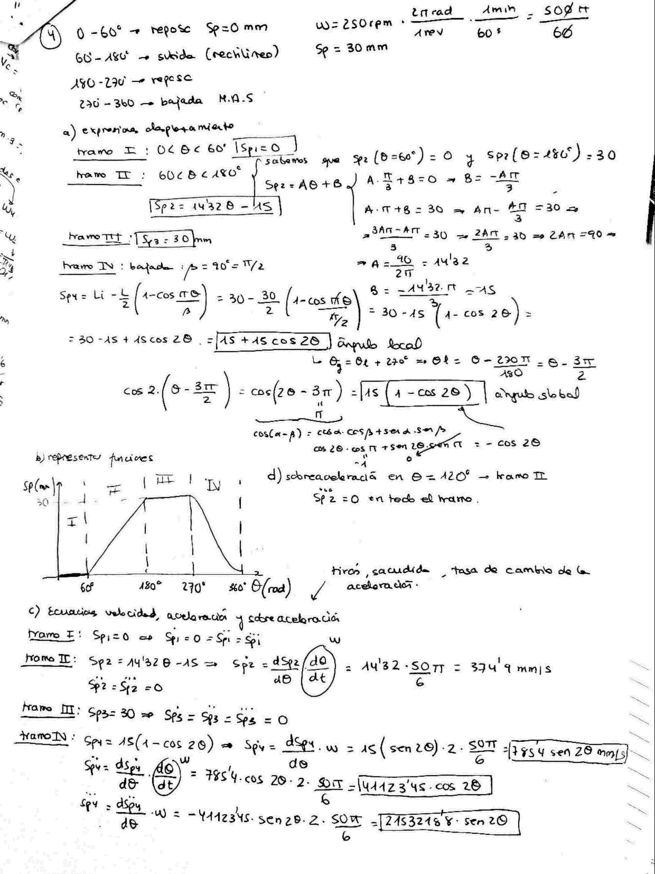 4 0-60° → reposo Sp=0 mm
60°-180° → subida (rectilíneo)
180-270 → reposo
270-360 → bajada M.A.S
ω=250rpm · 2π rad/1rev · 1min/60s = 500π/60
Sp = 30mm
a) expresión desplazamiento
tramo I: 0<θ<60° Sp1=0
tramo II: 60<θ<180°
sabemos que Sp2(θ=60°)=0 y Sp2(θ=180°)=30
Sp2=Aθ+B
A·π/3+B=0 → B=-Aπ/3
Sp2=14'32θ-15
A·π+B=30 ⇒ Aπ-Aπ/3=30 ⇒
⇒ 3Aπ-Aπ/3=30 ⇒ 2Aπ/3=30 ⇒ 2Aπ=90 ⇒
⇒ A=90/2π=14'32
B=-14'32·π/3=-15
tramo III: Sp3=30 mm
tramo IV: bajada: β=90°=π/2
Sp4=Li-L/2(1-cos πθ/β)=30-30/2(1-cos πθ/π/2)=30-15(1-cos 2θ)=
=30-15+15cos2θ.=15+15cos2θ ángulo local
↳ θg=θl+270° ⇒ θl=θ-270π/180=θ-3π/2
cos2·(θ-3π/2)=cos(2θ-3π)=15(1-cos2θ) ángulo global
π
cos(α-β)=cosα·cosβ+senα·senβ
cos2θ·cosπ+sen2θ·senπ=-cos2θ
-1 0
b) representa funciones
Sp(mm)
30
I II III IV
60° 180° 270° 360° θ(rad)
d) sobreaceleración en θ=120° → tramo II
S⃛p2=0 en todo el tramo.
tirón, sacudida, tasa de cambio de la
aceleración.
c) Ecuacións velocidad, aceleración y sobreaceleración
tramo I: Sp1=0 ⇒ Ṡp1=0=S̈p1=S⃛p1
tramo II: Sp2=14'32θ-15 ⇒ Ṡp2=dSp2/dθ·dθ/dt=14'32·50π/6=374'9 mm/s
ω
S̈p2=S⃛p2=0
tramo III: Sp3=30 ⇒ Ṡp3=S̈p3=S⃛p3=0
tramo IV: Sp4=15(1-cos2θ) ⇒ Ṡp4=dSp4/dθ·ω=15(sen2θ)·2·50π/6=785'4 sen2θ mm/s
S̈p4=dṠp4/dθ·dθ/dt=785'4·cos2θ·2·50π/6=41123'45·cos2θ
ω
S⃛p4=dS̈p4/dθ·ω=-41123'45·sen2θ·2·50π/6=2153218'8·sen2θ